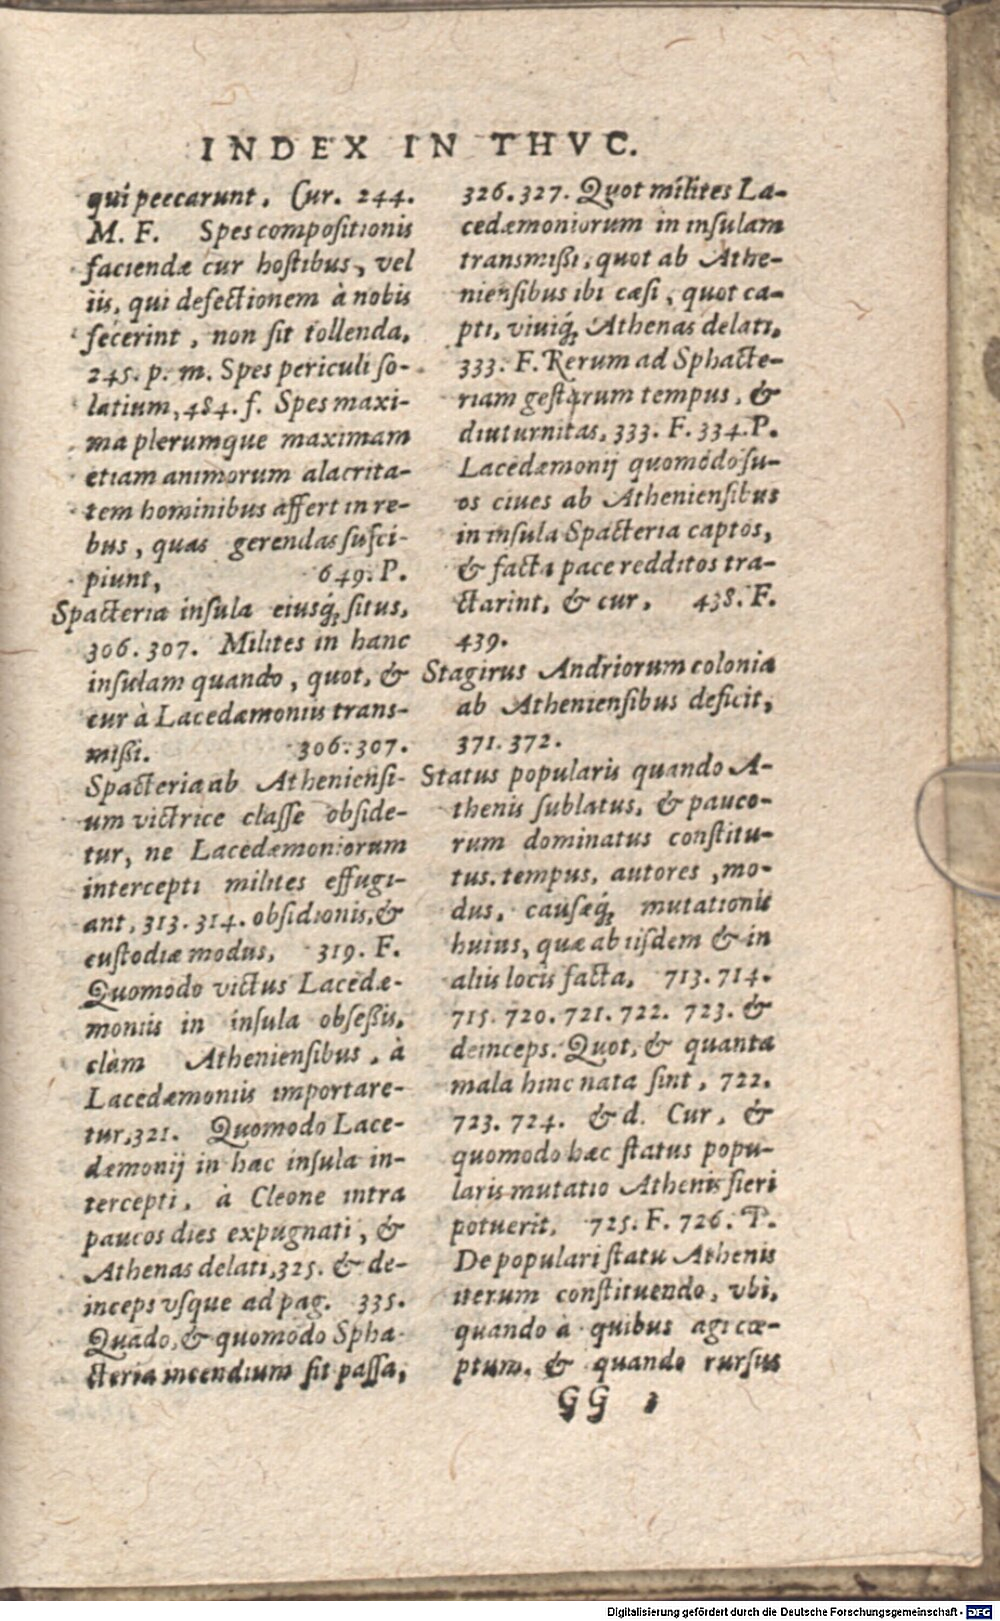 INDEX IN THVC.
qui peccarunt, Cur. 244.
M. F. Spes compositionis
faciendæ cur hostibus, vel
iis, qui defectionem à nobis
fecerint, non sit tollenda,
245. p. m. Spes periculi so-
latium, 484. f. Spes maxi-
ma plerumque maximam
etiam animorum alacrita-
tem hominibus affert in re-
bus, quas gerendas susci-
piunt, 649. P.
Spacteria insula eiusq́; situs,
306. 307. Milites in hanc
insulam quando, quot, &
cur à Lacedæmoniis trans-
mißi. 306. 307.
Spacteria ab Atheniensi-
um victrice classe obside-
tur, ne Lacedæmoniorum
intercepti milites effugi-
ant, 313. 314. obsidionis, &
custodiæ modus, 319. F.
Quomodo victus Lacedæ-
moniis in insula obseßis,
clàm Atheniensibus, à
Lacedæmoniis importare-
tur, 321. Quomodo Lace-
dæmonij in hac insula in-
tercepti, à Cleone intra
paucos dies expugnati, &
Athenas delati, 325. & de-
inceps vsque ad pag. 335.
Quãdo, & quomodo Spha-
cteria incendium sit passa,
326. 327. Quot milites La-
cedæmoniorum in insulam
transmißi, quot ab Athe-
niensibus ibi cæsi, quot ca-
pti, viuiq́; Athenas delati,
333. F. Rerum ad Sphacte-
riam gestarum tempus, &
diuturnitas, 333. F. 334. P.
Lacedæmonij quomodo su-
os ciues ab Atheniensibus
in insula Spacteria captos,
& facta pace redditos tra-
ctarint, & cur, 438. F.
439.
Stagirus Andriorum colonia
ab Atheniensibus deficit,
371. 372.
Status popularis quando A-
thenis sublatus, & pauco-
rum dominatus constitu-
tus, tempus, autores, mo-
dus, causæq́; mutationis
huius, quæ ab iisdem & in
aliis locis facta, 713. 714.
715. 720. 721. 722. 723. &
deinceps. Quot, & quanta
mala hinc nata sint, 722.
723. 724. & d. Cur, &
quomodo hæc status popu-
laris mutatio Athenis fieri
potuerit, 725. F. 726. P.
De populari statu Athenis
iterum constituendo, vbi,
quando à quibus agi cœ-
ptum, & quando rursus
GG 1
Digitalisierung gefördert durch die Deutsche Forschungsgemeinschaft - DFG